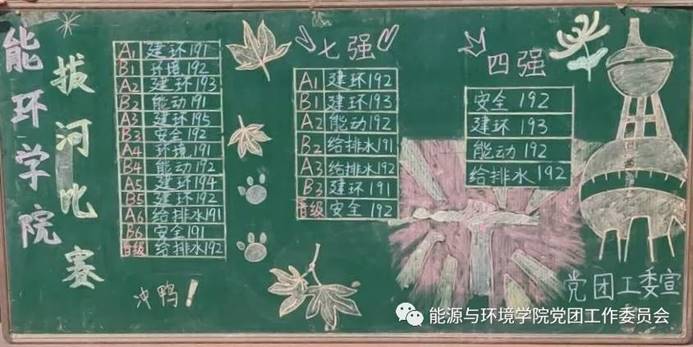 能环学院
拔河比赛
A1 建环191
B1 环境192
A2 建环193
B2 能动191
A3 建环195
B3 安全192
A4 环境191
B4 能动192
A5 建环194
B5 建环192
A6 给排水191
B6 安全191
晋级 给排水192
冲鸭!
七强
A1 建环192
B1 建环193
A2 能动192
B2 给排水191
A3 给排水192
B3 建环191
晋级 安全192
四强
安全192
建环193
能动192
给排水192
党团工委宣
能源与环境学院党团工作委员会